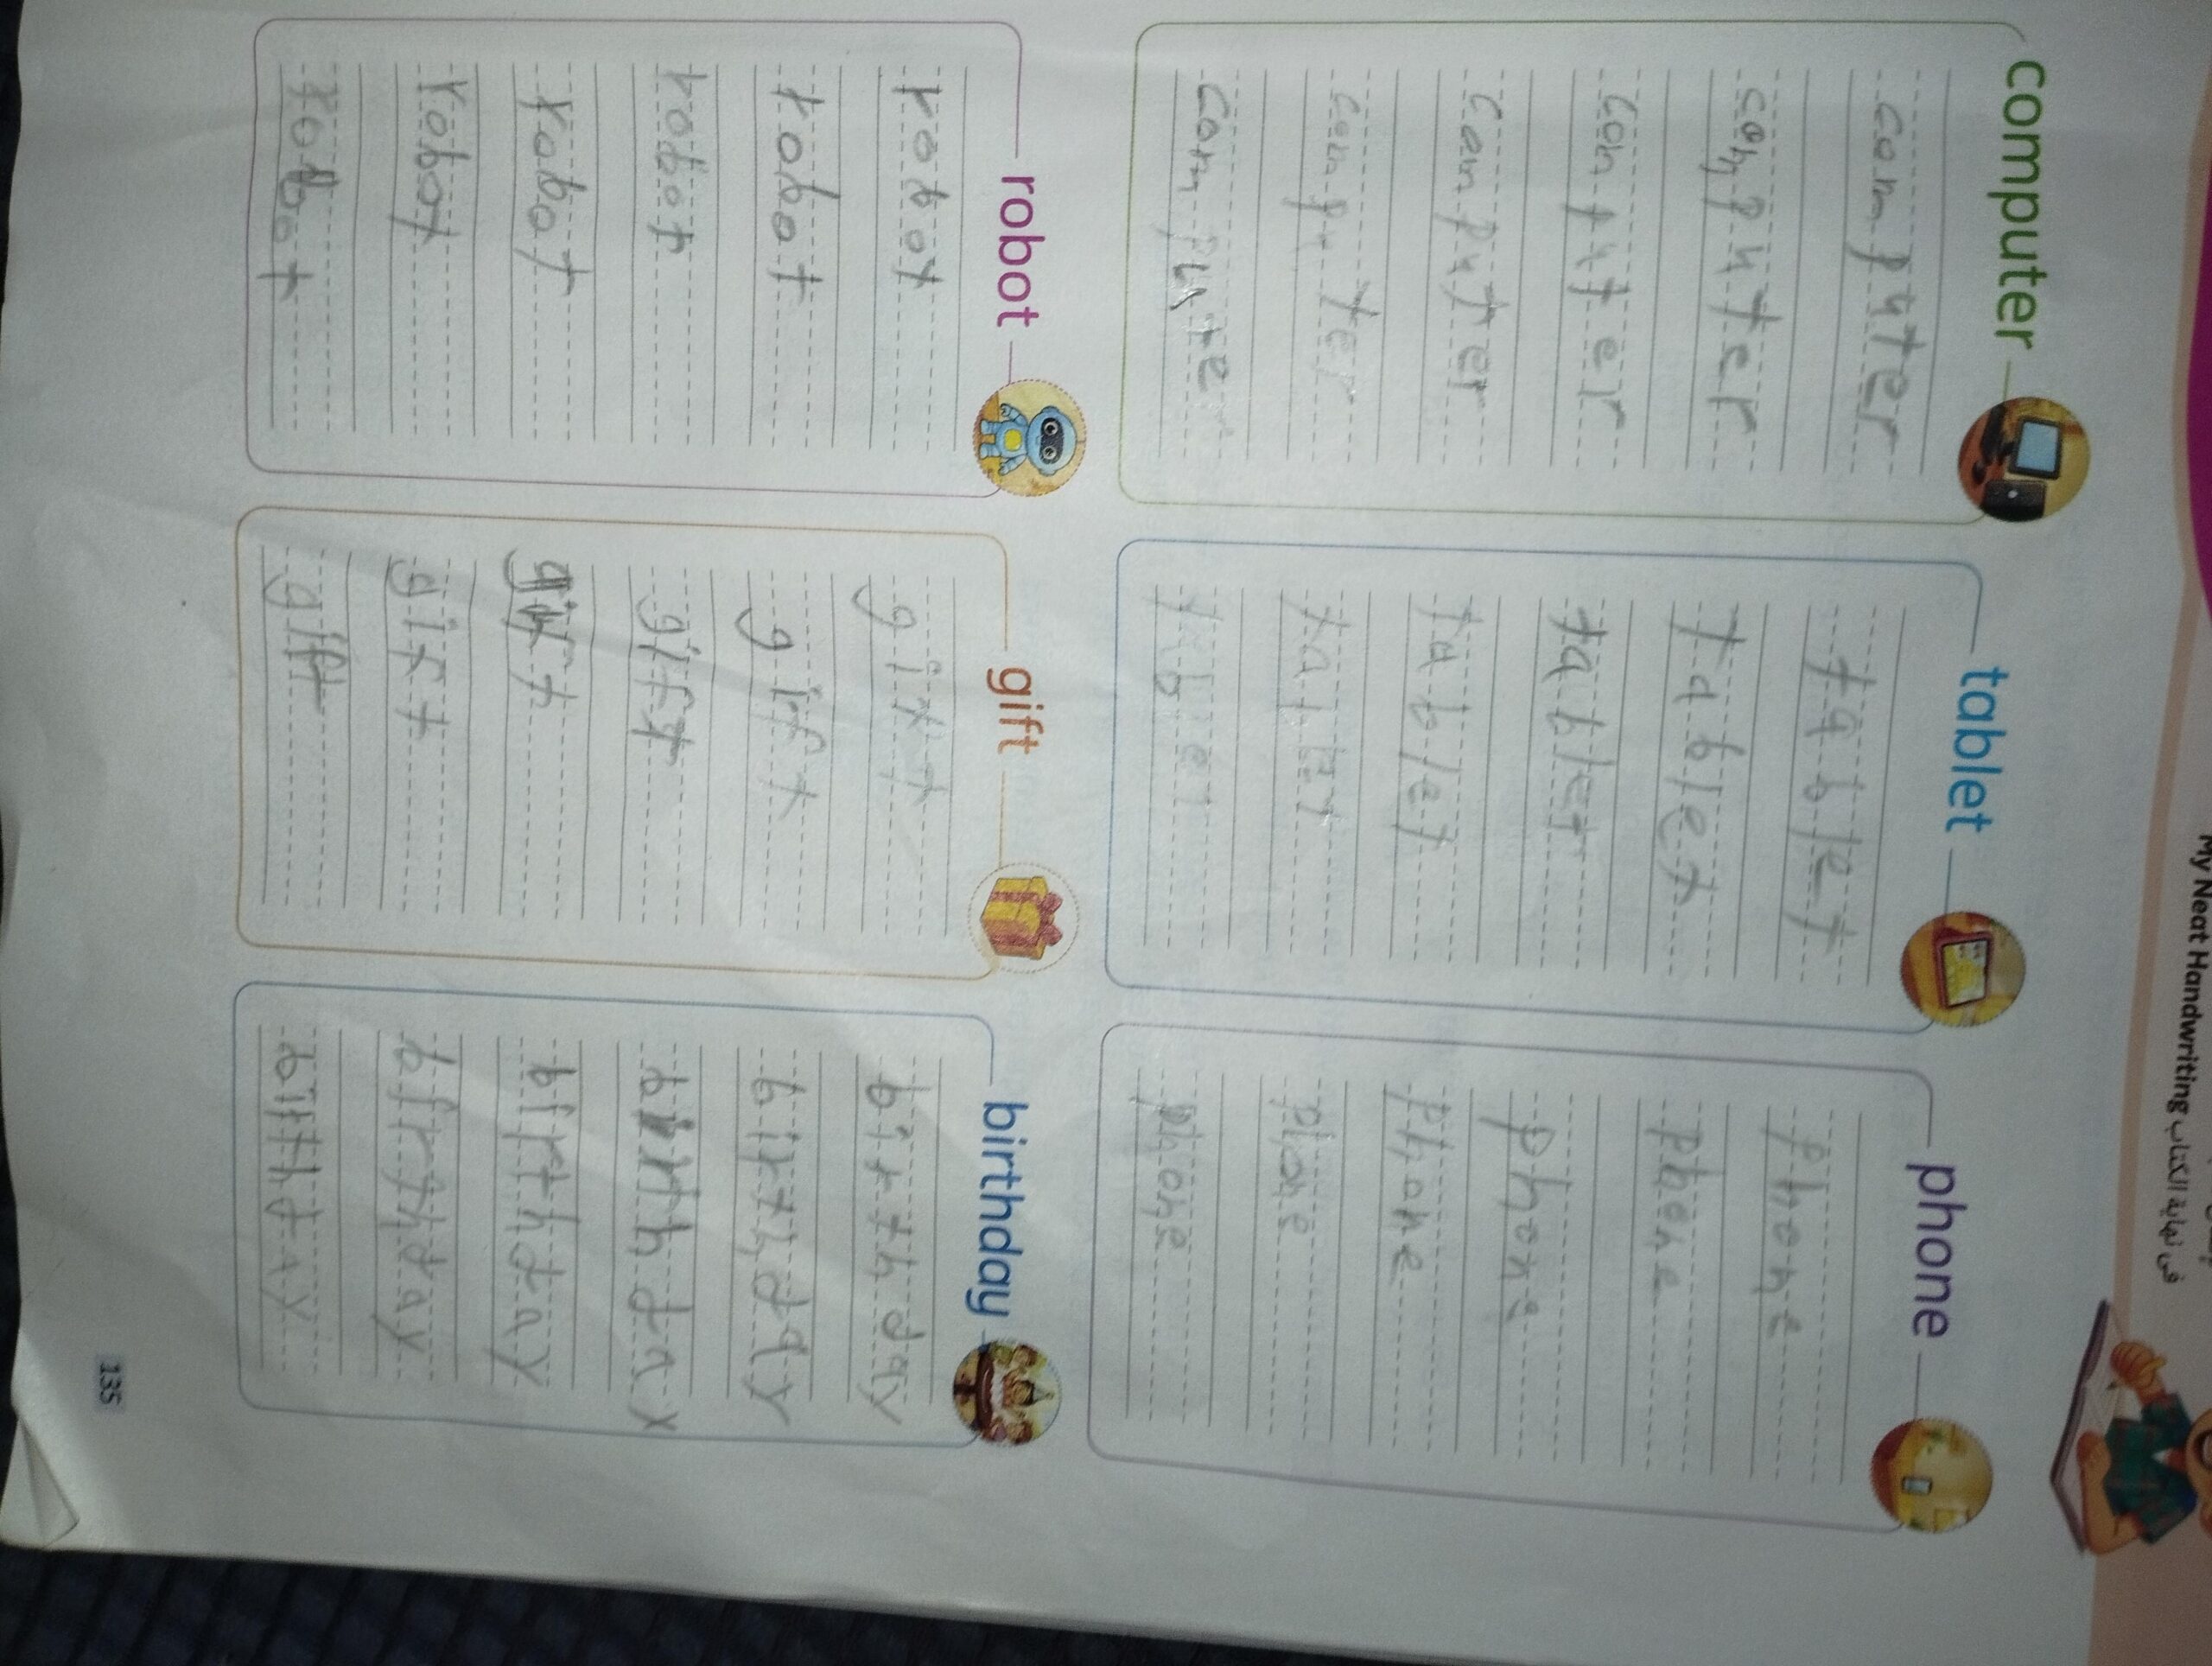 My Neat Handwriting في نهاية الكتاب
computer
computer
computer
computer
computer
computer
compute
tablet
tablet
tablet
tablet
tablet
phone
phone
phone
phone
phone
phone
phone
robot
robot
robot
robot
robot
robot
robot
gift
gift
gift
gift
gift
gift
birthday
birthday
birthday
birthday
birthday
birthday
birthday
135